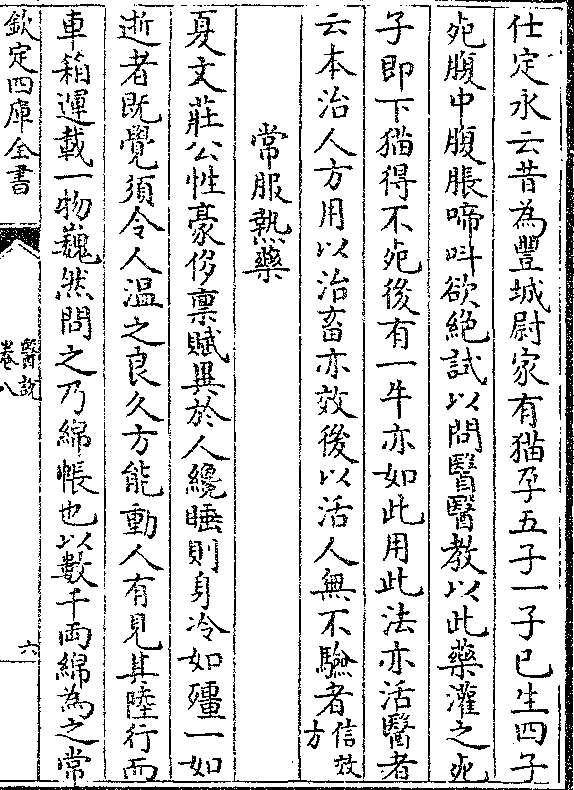 仕定永云昔為豐城尉家有猫孕五子一子已生四子
死腹中腹脹啼叫欲絶試以問醫醫教以此藥灌之死
子即下猫得不死後有一牛亦如此用此法亦活醫者
云本治人方用以治畜亦效後以活人無不驗者信效方
常服熱藥
夏文莊公性豪侈禀賦異於人纔睡則身冷如殭一如
逝者既覺須令人温之良久方能動人有見其陸行兩
車箱運載一物巍然問之乃綿帳也以數千兩綿為之常
欽定四庫全書
醫說
卷八
六